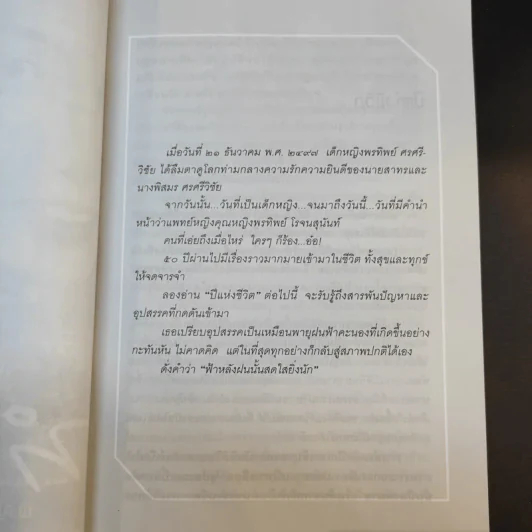 เมื่อวันที่ ๒๑ ธันวาคม พ.ศ. ๒๔๙๗ เด็กหญิงพรทิพย์ ศรศรี-
วิชัย ได้ลืมตาดูโลกท่ามกลางความรักความยินดีของนายสาทรและ
นางพิสมร ศรศรีวิชัย
จากวันนั้น...วันที่เป็นเด็กหญิง...จนมาถึงวันนี้...วันที่มีคำนำ
หน้าว่าแพทย์หญิงคุณหญิงพรทิพย์ โรจนสุนันท์
คนที่เอ่ยถึงเมื่อไหร่ ใครๆ ก็ร้อง...อ๋อ!
๕๐ ปีผ่านไปมีเรื่องราวมากมายเข้ามาในชีวิต ทั้งสุขและทุกข์
ให้จดจารจำ
ลองอ่าน “ปีแห่งชีวิต” ต่อไปนี้ จะรับรู้ถึงสารพันปัญหาและ
อุปสรรคที่กดดันเข้ามา
เธอเปรียบอุปสรรคเป็นเหมือนพายุฝนฟ้าคะนองที่เกิดขึ้นอย่าง
กะทันหัน ไม่คาดคิด แต่ในที่สุดทุกอย่างก็กลับสู่สภาพปกติได้เอง
ดั่งคำว่า “ฟ้าหลังฝนนั้นสดใสยิ่งนัก”